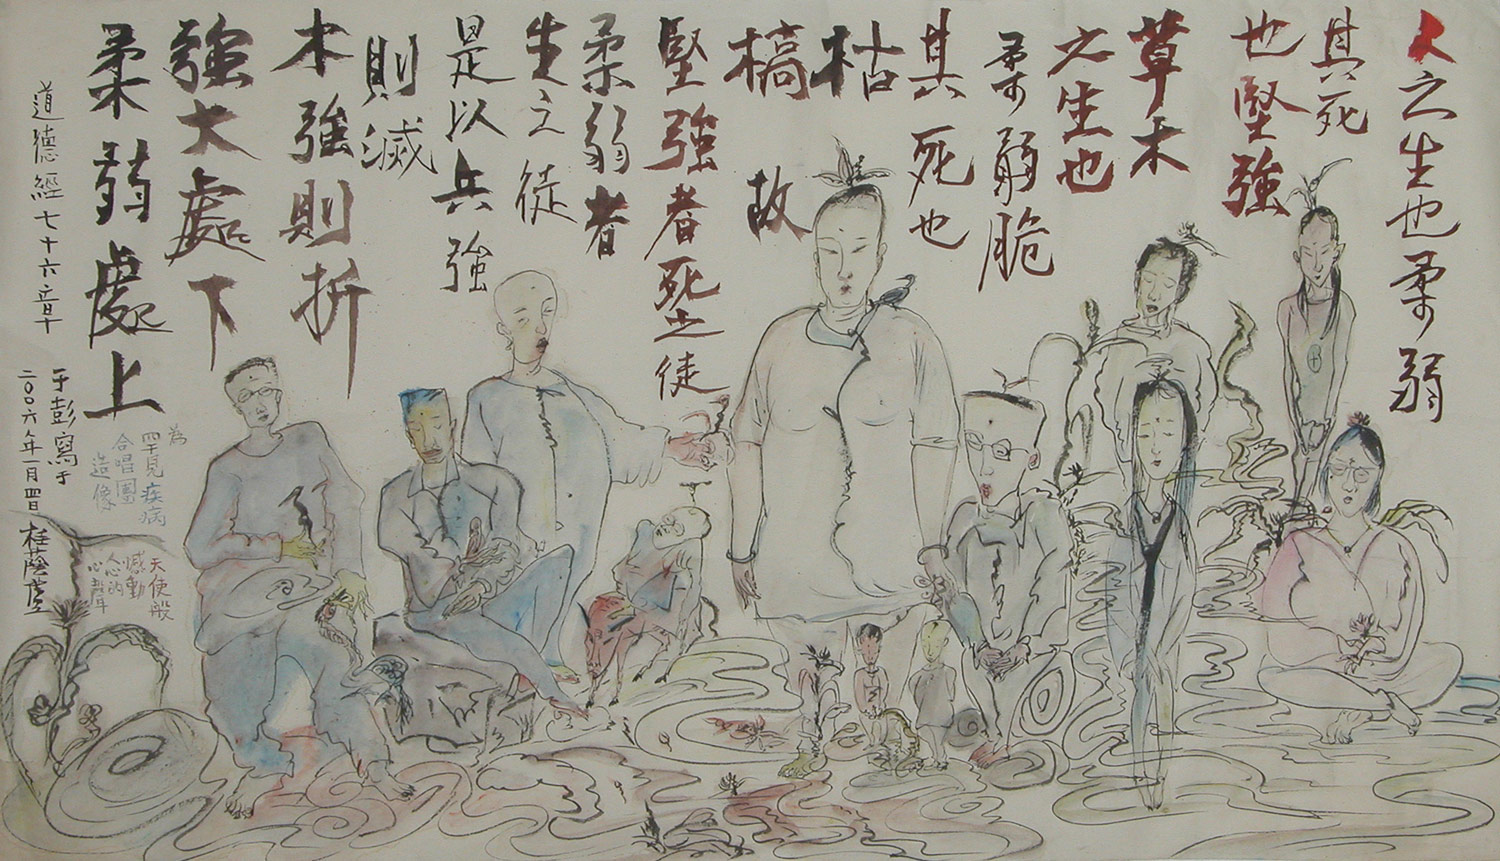 人之生也柔弱
其死
也堅強
草木
之生也
柔弱脆
其死也
枯
槁故
堅強者死之徒
柔弱者
生之徒
是以兵強
則滅
木強則折
強大處下
柔弱處上
道德經七十六章
于彭寫于
二00六年一月四日桂蔭廬
為
罕見疾病
合唱團
造像
天使般
憾動
人心的
心聲